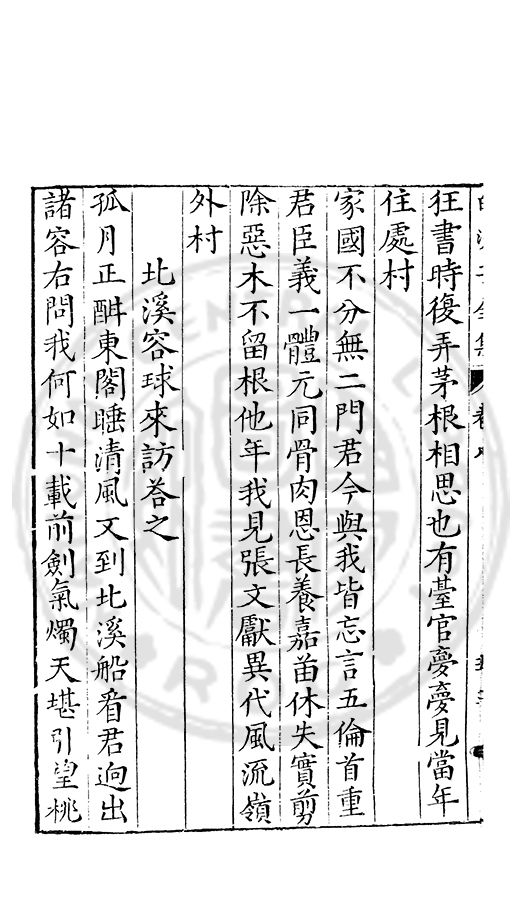 狂書時復弄茅根相思也有臺官夢夢見當年
住處村
家國不分無二門君今與我皆忘言五倫首重
君臣義一體元同骨肉恩長養嘉苗休失實剪
除惡木不留根他年我見張文獻異代風流嶺
外村
北溪容球來訪荅之
孤月正酣東閣睡清風又到北溪船看君逈出
諸容右問我何如十載前劍氣燭天堪引望桃